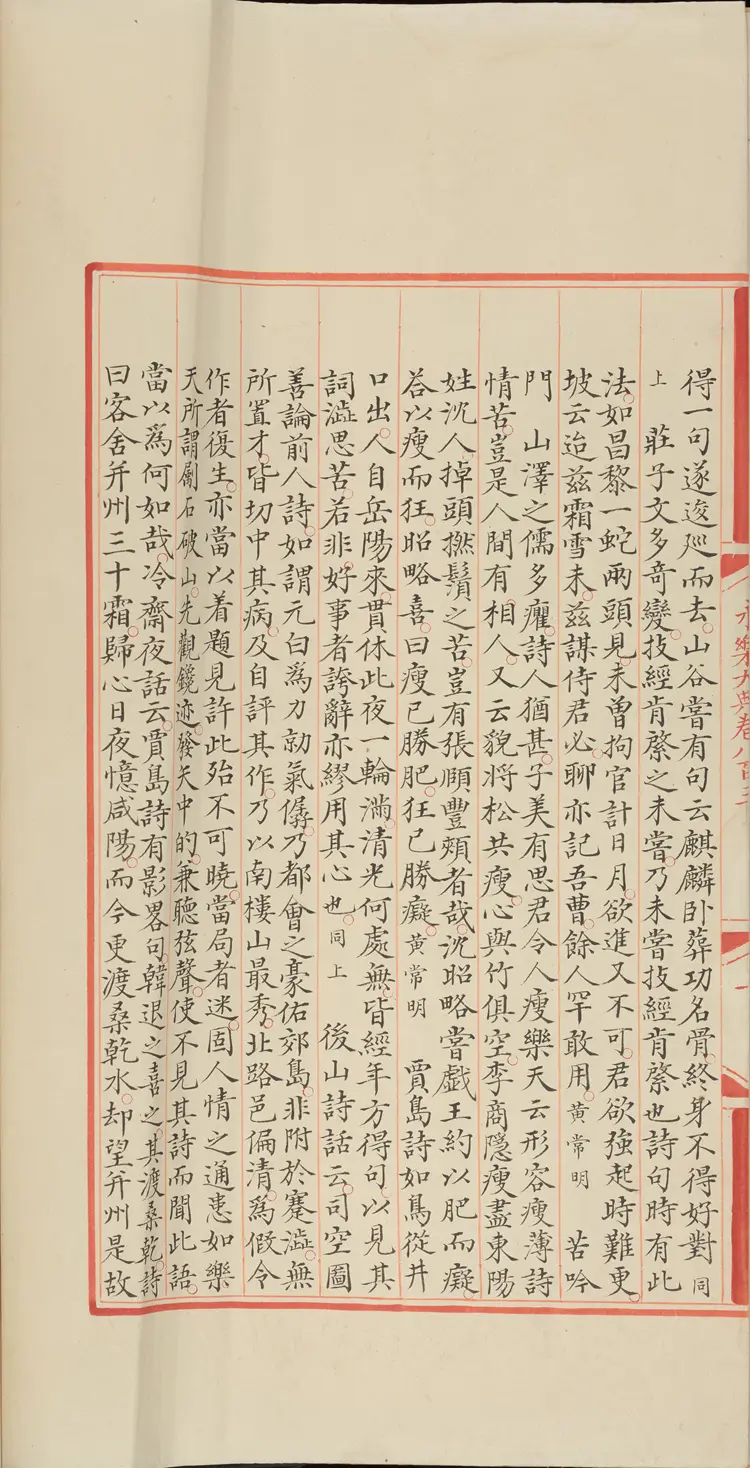 永樂大典卷八百
得一句遂逡廵而去山谷嘗有句云麒麟卧葬功名骨終身不得好對同
上　莊子文多奇變技經肯綮之未嘗乃未嘗技經肯綮也詩句時有此
法如昌黎一蛇兩頭見未曾拘官計日月欲進又不可君欲強起時難更
坡云迨茲霜雪未茲謀侍君必聊亦記吾曹餘人罕敢用黃常明　苦吟
門　山澤之儒多癯詩人猶甚子美有思君令人瘦樂天云形容瘦薄詩
情苦豈是人間有相人又云貌將松共瘦心與竹俱空李商隱瘦盡東陽
姓沈人掉頭撚鬚之苦豈有張頤豐頰者哉沈昭略嘗戲王約以肥而癡
荅以瘦而狂昭略喜曰瘦已勝肥狂已勝癡黃常明　賈島詩如鳥從井
口出人自岳陽來貫休此夜一輪滿清光何處無皆經年方得句以見其
詞澁思苦若非好事者誇辭亦繆用其心也同上　後山詩話云司空圖
善論前人詩如謂元白為力勍氣孱乃都會之豪佑郊島非附於蹇澁無
所置才皆切中其病及自評其作乃以南樓山最秀北路邑偏清為假令
作者復生亦當以着題見許此殆不可曉當局者迷固人情之通患如樂
天所謂劚石破山先觀鑱迹發矢中的兼聽弦聲使不見其詩而聞此語
當以為何如哉冷齋夜話云賈島詩有影畧句韓退之喜之其渡桑乾詩
曰客舍并州三十霜歸心日夜憶咸陽而今更渡桑乾水却望并州是故